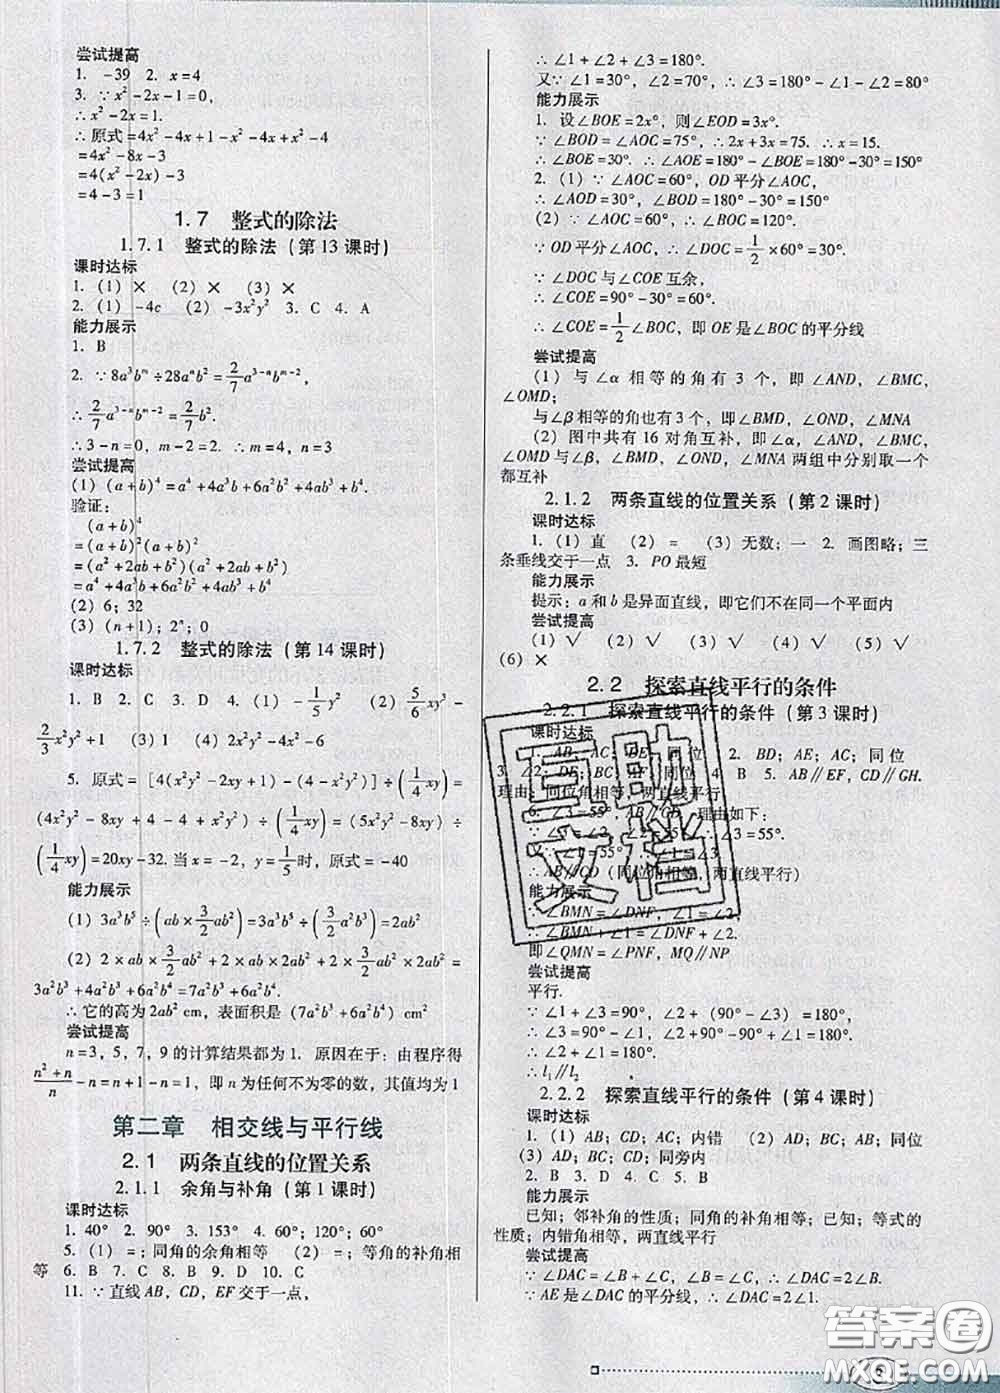 尝试提高
1. -39 2. x=4
3. ∵x²-2x-1=0,
∴x²-2x=1.
∴原式=4x²-4x+1-x²-4x+x²-4
=4x²-8x-3
=4(x²-2x)-3
=4-3=1
1.7 整式的除法
1.7.1 整式的除法(第13课时)
课时达标
1. (1)× (2)× (3)×
2. (1)-4c (2)-3x²y² 3. C 4. A
能力展示
1. B
2. ∵8a³bᵐ÷28aⁿb²=2/7a³⁻ⁿbᵐ⁻²,
∴2/7a³⁻ⁿbᵐ⁻²=2/7b².
∴3-n=0, m-2=2. ∴m=4, n=3
尝试提高
(1) (a+b)⁴=a⁴+4a³b+6a²b²+4ab³+b⁴.
验证:
(a+b)⁴
=(a+b)²(a+b)²
=(a²+2ab+b²)(a²+2ab+b²)
=a⁴+4a³b+6a²b²+4ab³+b⁴
(2) 6; 32
(3) (n+1); 2ⁿ; 0
1.7.2 整式的除法(第14课时)
课时达标
1. B 2. C 3. D 4. (1) -1/5y² (2) 5/6xy²-
2/3x²y²+1 (3) 1 (4) 2x²-4x-6
5. 原式=[4(x²y²-2xy+1)-(4-x²y²)]÷(1/4xy)=
(4x²y²-8xy+4-4+x²y²)÷(1/4xy)=(5x²y²-8xy)÷
(1/4xy)=20xy-32. 当x=-2, y=1/5时,原式=-40
能力展示
(1) 3a³b⁵÷(ab×3/2ab²)=3a³b⁵÷(3/2a²b³)=2ab²
(2) 2×ab×3/2ab²+2×ab×2ab²+2×3/2ab²×2ab²=
3a²b³+4a²b³+6a²b⁴=7a²b³+6a²b⁴.
∴它的高为2ab² cm,表面积是(7a²b³+6a²b⁴)cm²
尝试提高
n=3,5,7,9的计算结果都为1. 原因在于:由程序得
(n²+n)/n-n=n+1-n=1,即n为任何不为零的数,其值均为1
第二章 相交线与平行线
2.1 两条直线的位置关系
2.1.1 余角与补角(第1课时)
课时达标
1. 40° 2. 90° 3. 153° 4. 60°;120°;60°
5. (1)=;同角的余角相等 (2)=;等角的补角相
等 6. B 7. C 8. B 9. D 10. C
11. ∵直线AB,CD,EF交于一点,
∴∠1+∠2+∠3=180°.
又∵∠1=30°,∠2=70°,∴∠3=180°-∠1-∠2=80°
能力展示
1. 设∠BOE=2x°,则∠EOD=3x°.
∵∠BOD=∠AOC=75°,∴2x+3x=75. ∴x=15.
∴∠BOE=30°. ∴∠AOE=180°-∠BOE=180°-30°=150°
2. (1)∵∠AOC=60°,OD平分∠AOC,
∴∠AOD=30°,∴∠BOD=180°-30°=150°
(2)∵∠AOC=60°,∴∠BOC=120°.
∵OD平分∠AOC,∴∠DOC=1/2×60°=30°.
∵∠DOC与∠COE互余,
∴∠COE=90°-30°=60°.
∴∠COE=1/2∠BOC,即OE是∠BOC的平分线
尝试提高
(1)与∠α相等的角有3个,即∠AND,∠BMC,
∠OMD;
与∠β相等的角也有3个,即∠BMD,∠OND,∠MNA
(2)图中共有16对角互补,即∠α,∠AND,∠BMC,
∠OMD与∠β,∠BMD,∠OND,∠MNA两组中分别取一个
都互补
2.1.2 两条直线的位置关系(第2课时)
课时达标
1. (1)直 (2)= (3)无数;一 2. 画图略;三
条垂线交于一点 3. PO最短
能力展示
提示:a和b是异面直线,即它们不在同一个平面内
尝试提高
(1)√ (2)√ (3)√ (4)√ (5)√
(6)×
2.2 探索直线平行的条件
2.2.1 探索直线平行的条件(第3课时)
课时达标
1. AB;AC;DE;同位 2. BD;AE;AC;同位
3. ∠2;DE;BC;同位 4. B 5. AB∥EF,CD∥GH.
理由:同位角相等,两直线平行
6. ∠3=55°,AB∥CD. 理由如下:
∵∠1=55°,∴∠1=∠3.
∴AB∥CD(同位角相等,两直线平行)
能力展示
∵∠BMN=∠DNF,∠1=∠2,
∴∠BMN+∠1=∠DNF+∠2.
即∠QMN=∠PNF,MQ∥NP
尝试提高
平行.
∵∠1+∠3=90°,∠2+(90°-∠3)=180°,
∴∠3=90°-∠1,∠2+90°-90°+∠1=180°.
∴∠1+∠2=180°.
∴l₁∥l₂
2.2.2 探索直线平行的条件(第4课时)
课时达标
1. (1)AB;CD;AC;内错 (2)AD;BC;AB;同位
(3)AD;BC;CD;同旁内
2. B 3. D 4. C 5. B
能力展示
已知;邻补角的性质;同角的补角相等;已知;等式的
性质;内错角相等,两直线平行
尝试提高
∵∠DAC=∠B+∠C,∠B=∠C,∴∠DAC=2∠B.
∵AE是∠DAC的平分线,∴∠DAC=2∠1.
互助文档
答案圈
MXQE.COM